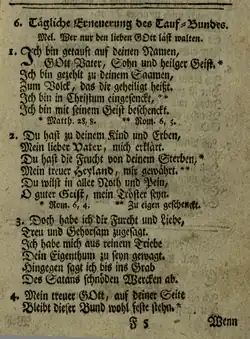 6. Tägliche Erneuerung des Tauf-Bundes.
Mel. Wer nur den lieben GOtt läßt walten.
1. Ich bin getauft auf deinen Namen,
GOtt Vater, Sohn und heilger Geist.*
Ich bin gezehlt zu deinem Saamen,
Zum Volck, das dir geheiligt heißt.
Ich bin in Christum eingesenckt, **
Ich bin mit seinem Geist beschenckt.
* Matth. 28, 8. ** Rom. 6, 5.
2. Du hast zu deinem Kind und Erben,
Mein lieber Vater, mich erklärt.
Du hast die Frucht von deinem Sterben,*
Mein treuer Heyland, mir gewährt.**
Du wilst in aller Noth und Pein,
O guter Geist, mein Tröster seyn.
* Rom. 6, 4. ** Zu eigen geschenckt.
3. Doch habe ich dir Furcht und Liebe,
Treu und Gehorsam zugesagt.
Ich habe mich aus reinem Triebe
Dein Eigenthum zu seyn gewagt.
Hingegen sagt ich bis ins Grab
Des Satans schnöden Wercken ab.
4. Mein treuer GOtt, auf deiner Seite
Bleibt dieser Bund wohl feste stehn.*
F 5 Wenn